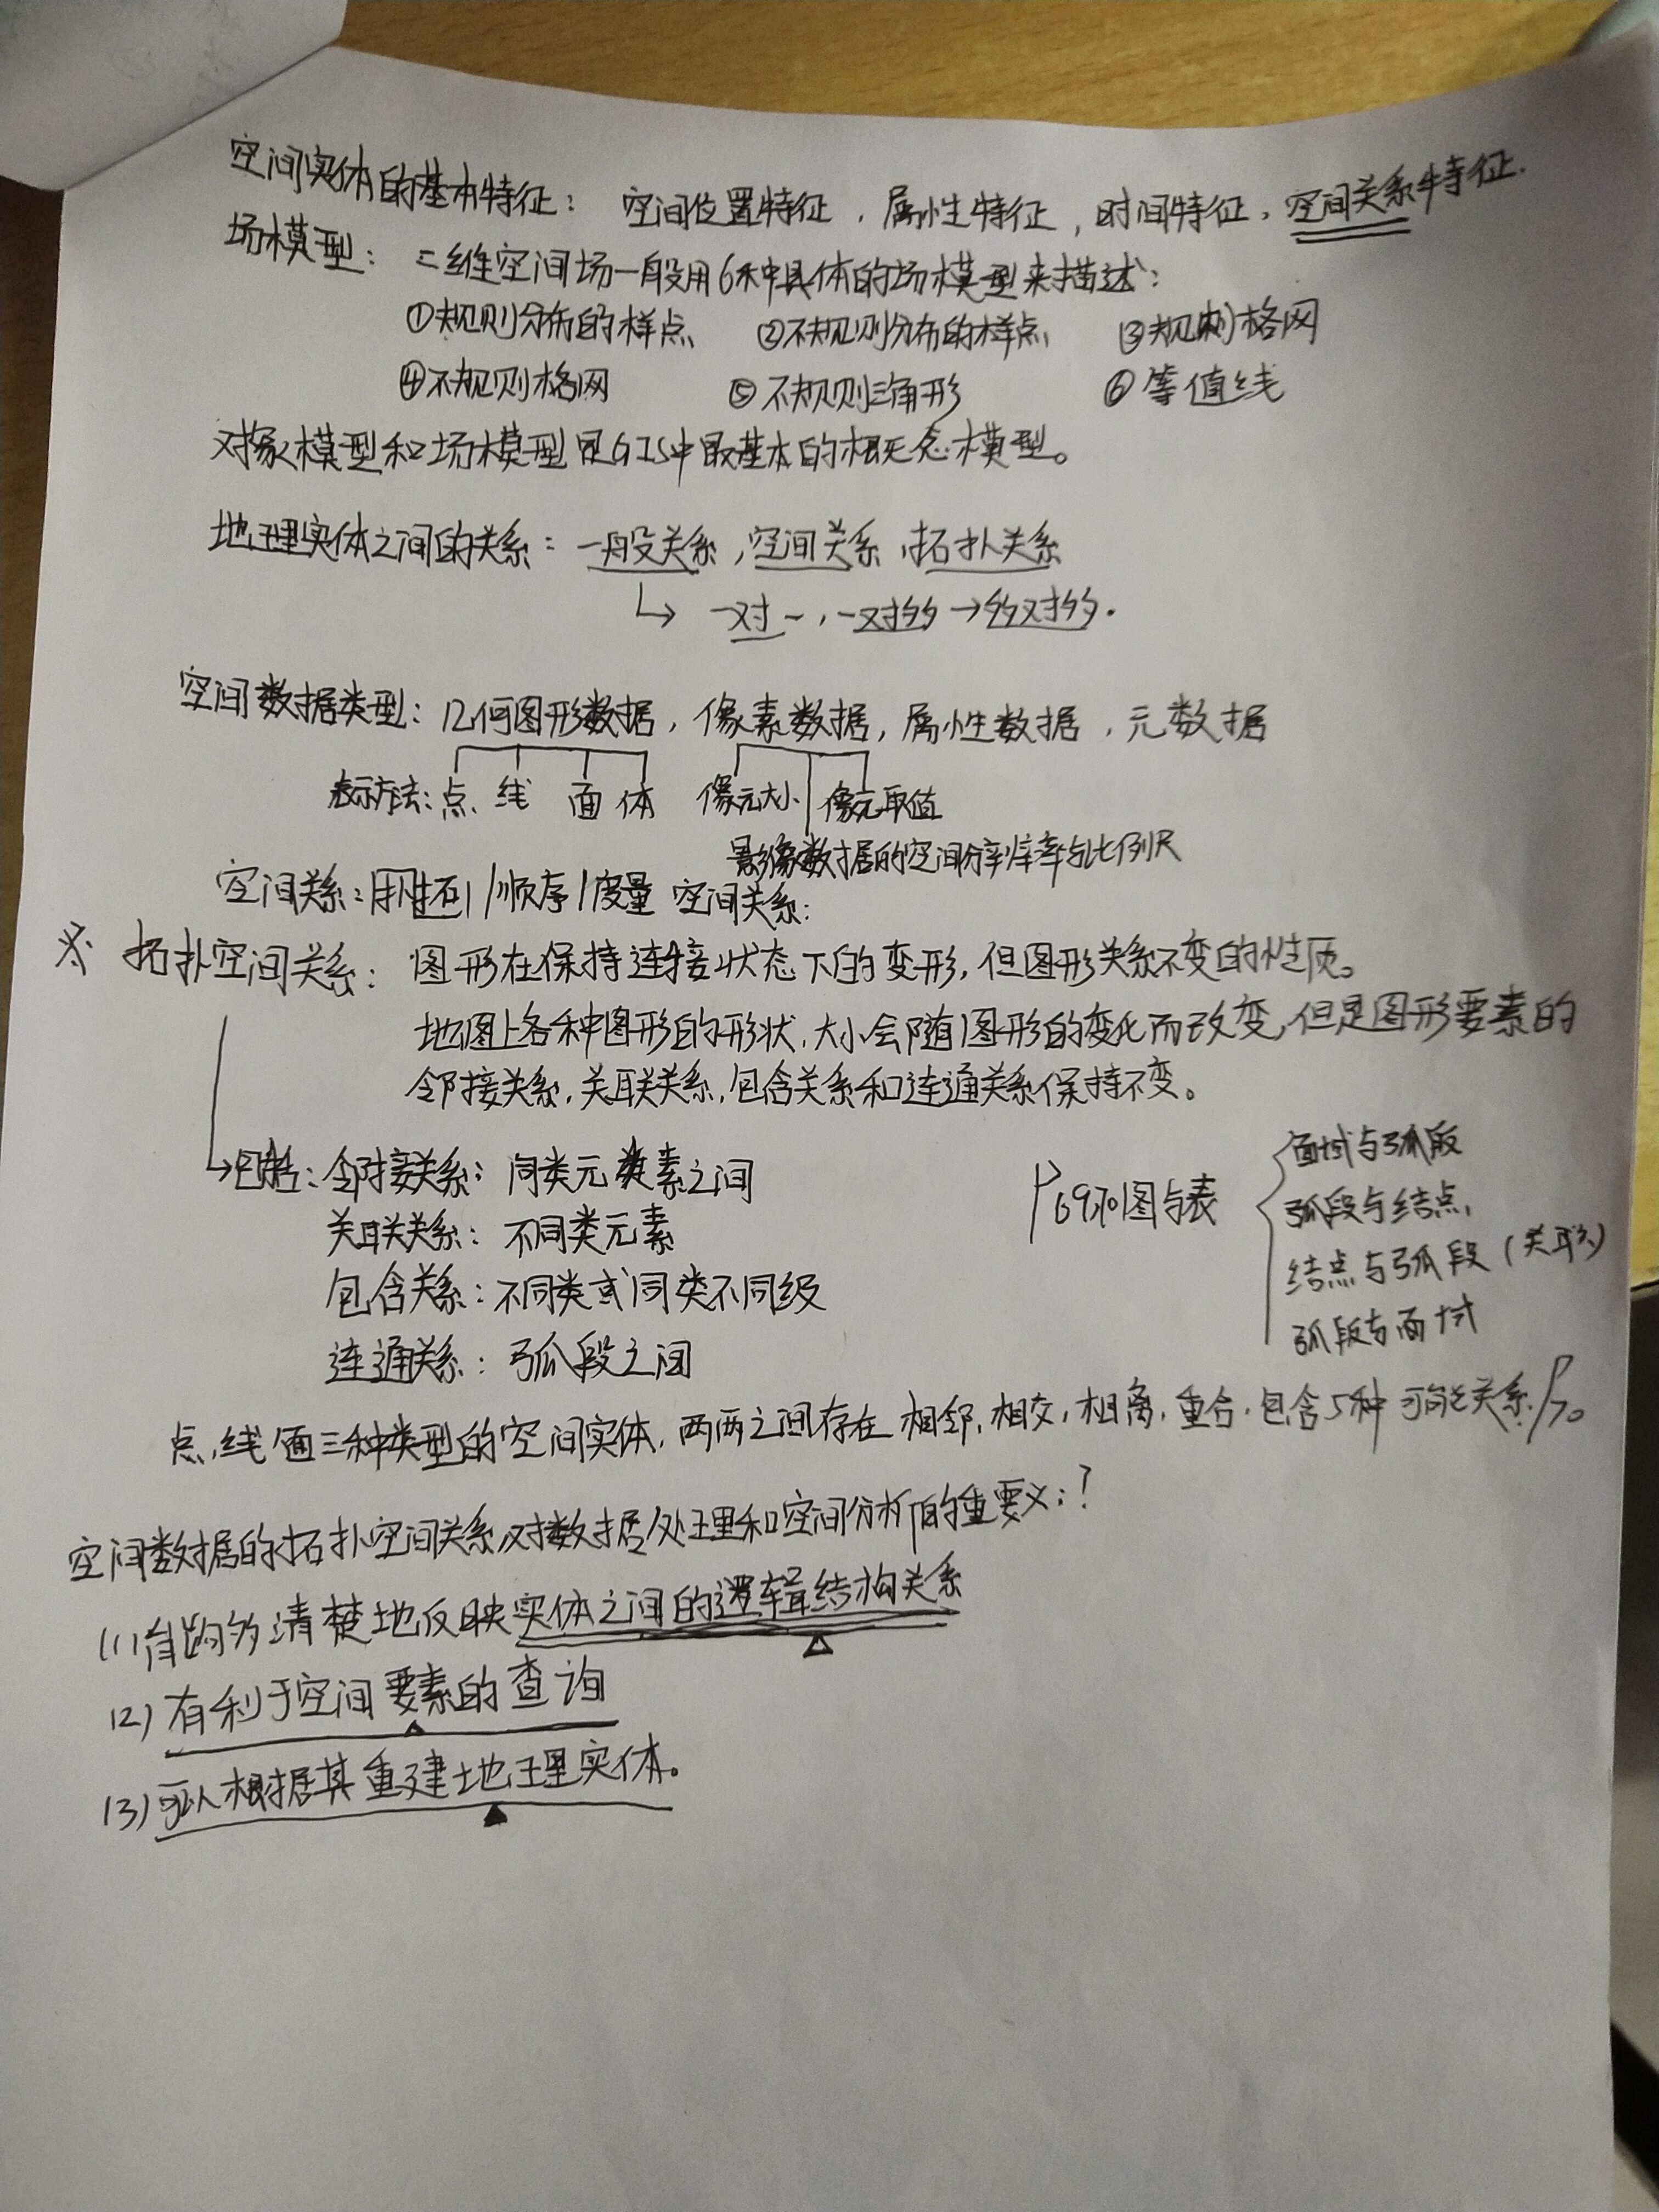 空间实体的基本特征：空间位置特征，属性特征，时间特征，空间关系特征.
场模型：二维空间场一般用6种具体的场模型来描述：
①规则分布的样点 ②不规则分布的样点 ③规则格网
④不规则格网 ⑤不规则三角形 ⑥等值线
对象模型和场模型是GIS中最基本的概念模型。
地理实体之间的关系：一般关系，空间关系，拓扑关系
↳ 一对一，一对多→多对多.
空间数据类型：几何图形数据，像素数据，属性数据，元数据
表示方法：点 线 面 体 像元大小 像元取值
影像数据的空间分辨率与比例尺
空间关系： /顺序/度量 空间关系：
※ 拓扑空间关系：图形在保持连接状态下的变形，但图形关系不变的性质。
地图上各种图形的形状、大小会随图形的变化而改变，但是图形要素的
邻接关系，关联关系，包含关系和连通关系保持不变。
↳包括：邻接关系：同类元素之间
关联关系：不同类元素
包含关系：不同类或同类不同级
连通关系：弧段之间
P69.70图与表
面域与弧段
弧段与结点
结点与弧段（关联）
弧段与面域
点，线，面三种类型的空间实体，两两之间存在相邻，相交，相离，重合，包含5种可能关系P70
空间数据的拓扑空间关系对数据处理和空间分析的重要义：？
(1)能够清楚地反映实体之间的逻辑结构关系
(2)有利于空间要素的查询
(3)可以根据其重建地理实体。